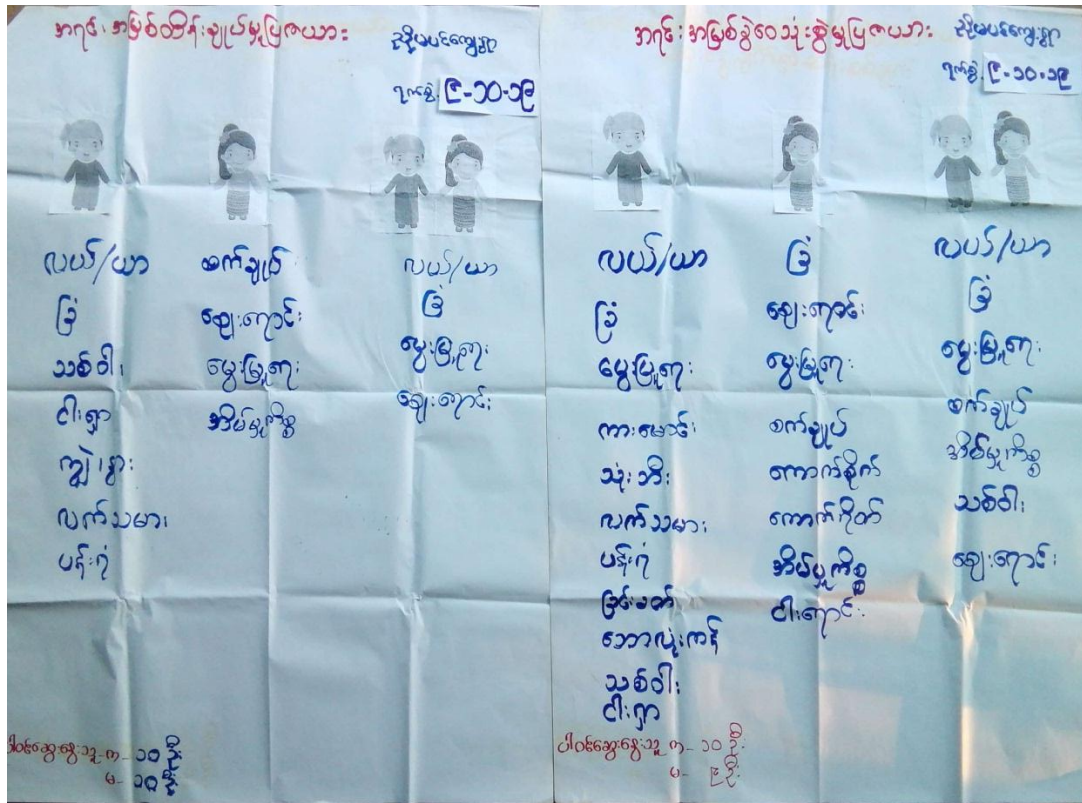 အရင်းအမြစ်ထိန်းချုပ်မှုပြဇယား
ရက်စွဲ. ၉-၁၀-၁၉
လယ်/ယာ
ခြံ
သစ်ဝါး
ငါးရှာ
ကျွဲ၊နွား
လက်သမား
ပန်းရံ
စက်ချုပ်
ဈေးရောင်း
မွေးမြူရေး
အိမ်မှုကိစ္စ
လယ်/ယာ
ခြံ
မွေးမြူရေး
ဈေးရောင်း
ပါဝင်ဆွေးနွေးသူ ကျ- ၁၀ ဦး
မ- ၁၀ ဦး
အရင်းအမြစ်ခွဲဝေသုံးစွဲမှုပြဇယား
ရက်စွဲ. ၉-၁၀-၁၉
လယ်/ယာ
ခြံ
မွေးမြူရေး
ကားမောင်း
သုံးဘီး
လက်သမား
ပန်းရံ
ခြင်းခတ်
ဘောလုံးကန်
သစ်ဝါး
ငါးရှာ
ခြံ
ဈေးရောင်း
မွေးမြူရေး
စက်ချုပ်
ကောက်စိုက်
ကောက်ရိတ်
အိမ်မှုကိစ္စ
ငါးရောင်း
လယ်/ယာ
ခြံ
မွေးမြူရေး
စက်ချုပ်
အိမ်မှုကိစ္စ
သစ်ဝါး
ဈေးရောင်း
ပါဝင်ဆွေးနွေးသူ ကျ- ၁၀ ဦး
မ- ၉ ဦး